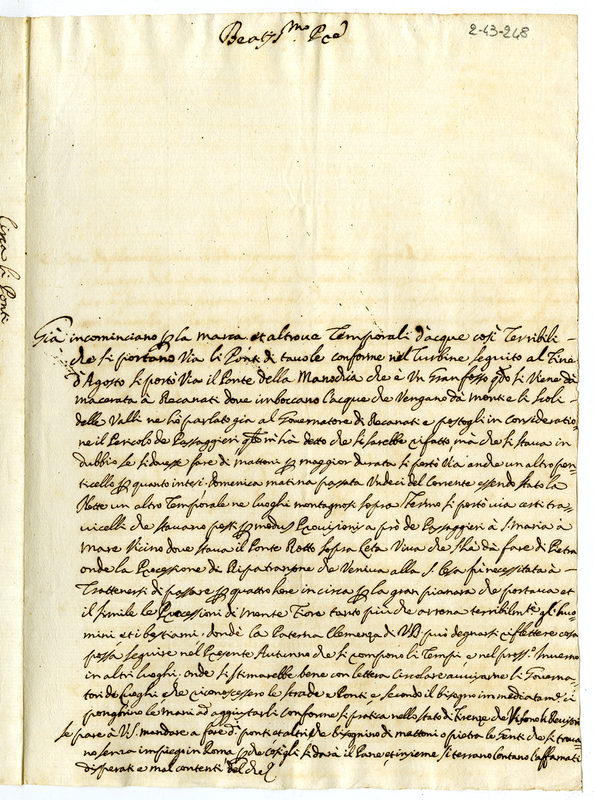 Beatiss.mo P.re
2-43-248
Circa li Ponti
Già incominciano p la Marca et altrove Temporali d'acque così Terribili
che si portano Via li Ponti di tavole conforme nel Turbine seguito al Fine
d'Agosto si portò Via il Ponte della che è Un Gran fosso si Viene da
Macerata a Recanati dove imboccano l'acque che Vengano da monti e li scoli
delle Valli ne hò parlato già al Governatore di Recanati e postogli in consideratio
ne il Pericolo de Passaggieri mi hà detto che si sarebbe rifatto, ma che si stava in
dubbio se si dovesse fare di mattoni p maggior durata si portò Via anche un altro pon
ticello p quanto intesi. Domenica matina passata Undeci del Corrente essendo stato la
Notte un altro Temporale ne luoghi montagnosi sopra Fermo si portò via certi tra
vicelli che stavano posti p modus Provisioni a prò de Passaggieri à S. Maria à
Mare Vicino dove stava il Ponte Rotto sopra Leta Viva che s'hà da fare di Pietra
onde la Processione di Ripatransone che Veniva alla S. Casa fù necessitata à
Trattenersi di passare p quattro hore in circa p la gran pianara che portava et
il simile le Processioni di Monte Fiore tanto più che atterra gl'huo
mini, et i bestiami, donde la Paterna Clemenza di V.B. può degnarsi riflettere cosa
possa seguire nel Presente Autunno che si rompono li Tempi, e nel pross.o Inverno
in altri luoghi, onde si stimarebbe bene con lettera Circolare avvisarne li Governa
tori de luoghi che riconoscessero le strade e Ponti, e secondo il bisogno immediatam.te ci
ponghino le Mani ad aggiustarli conforme si pratica nello stato di Firenze che
se pare à V.S. mandare a fare d.i ponti et altri che bisognino di mattoni o pietra le Genti che si trova
no senza impiego in Roma, p che così gli si darà il Pane, et insieme si terrano lontano l'affamati
disperati e mal contenti